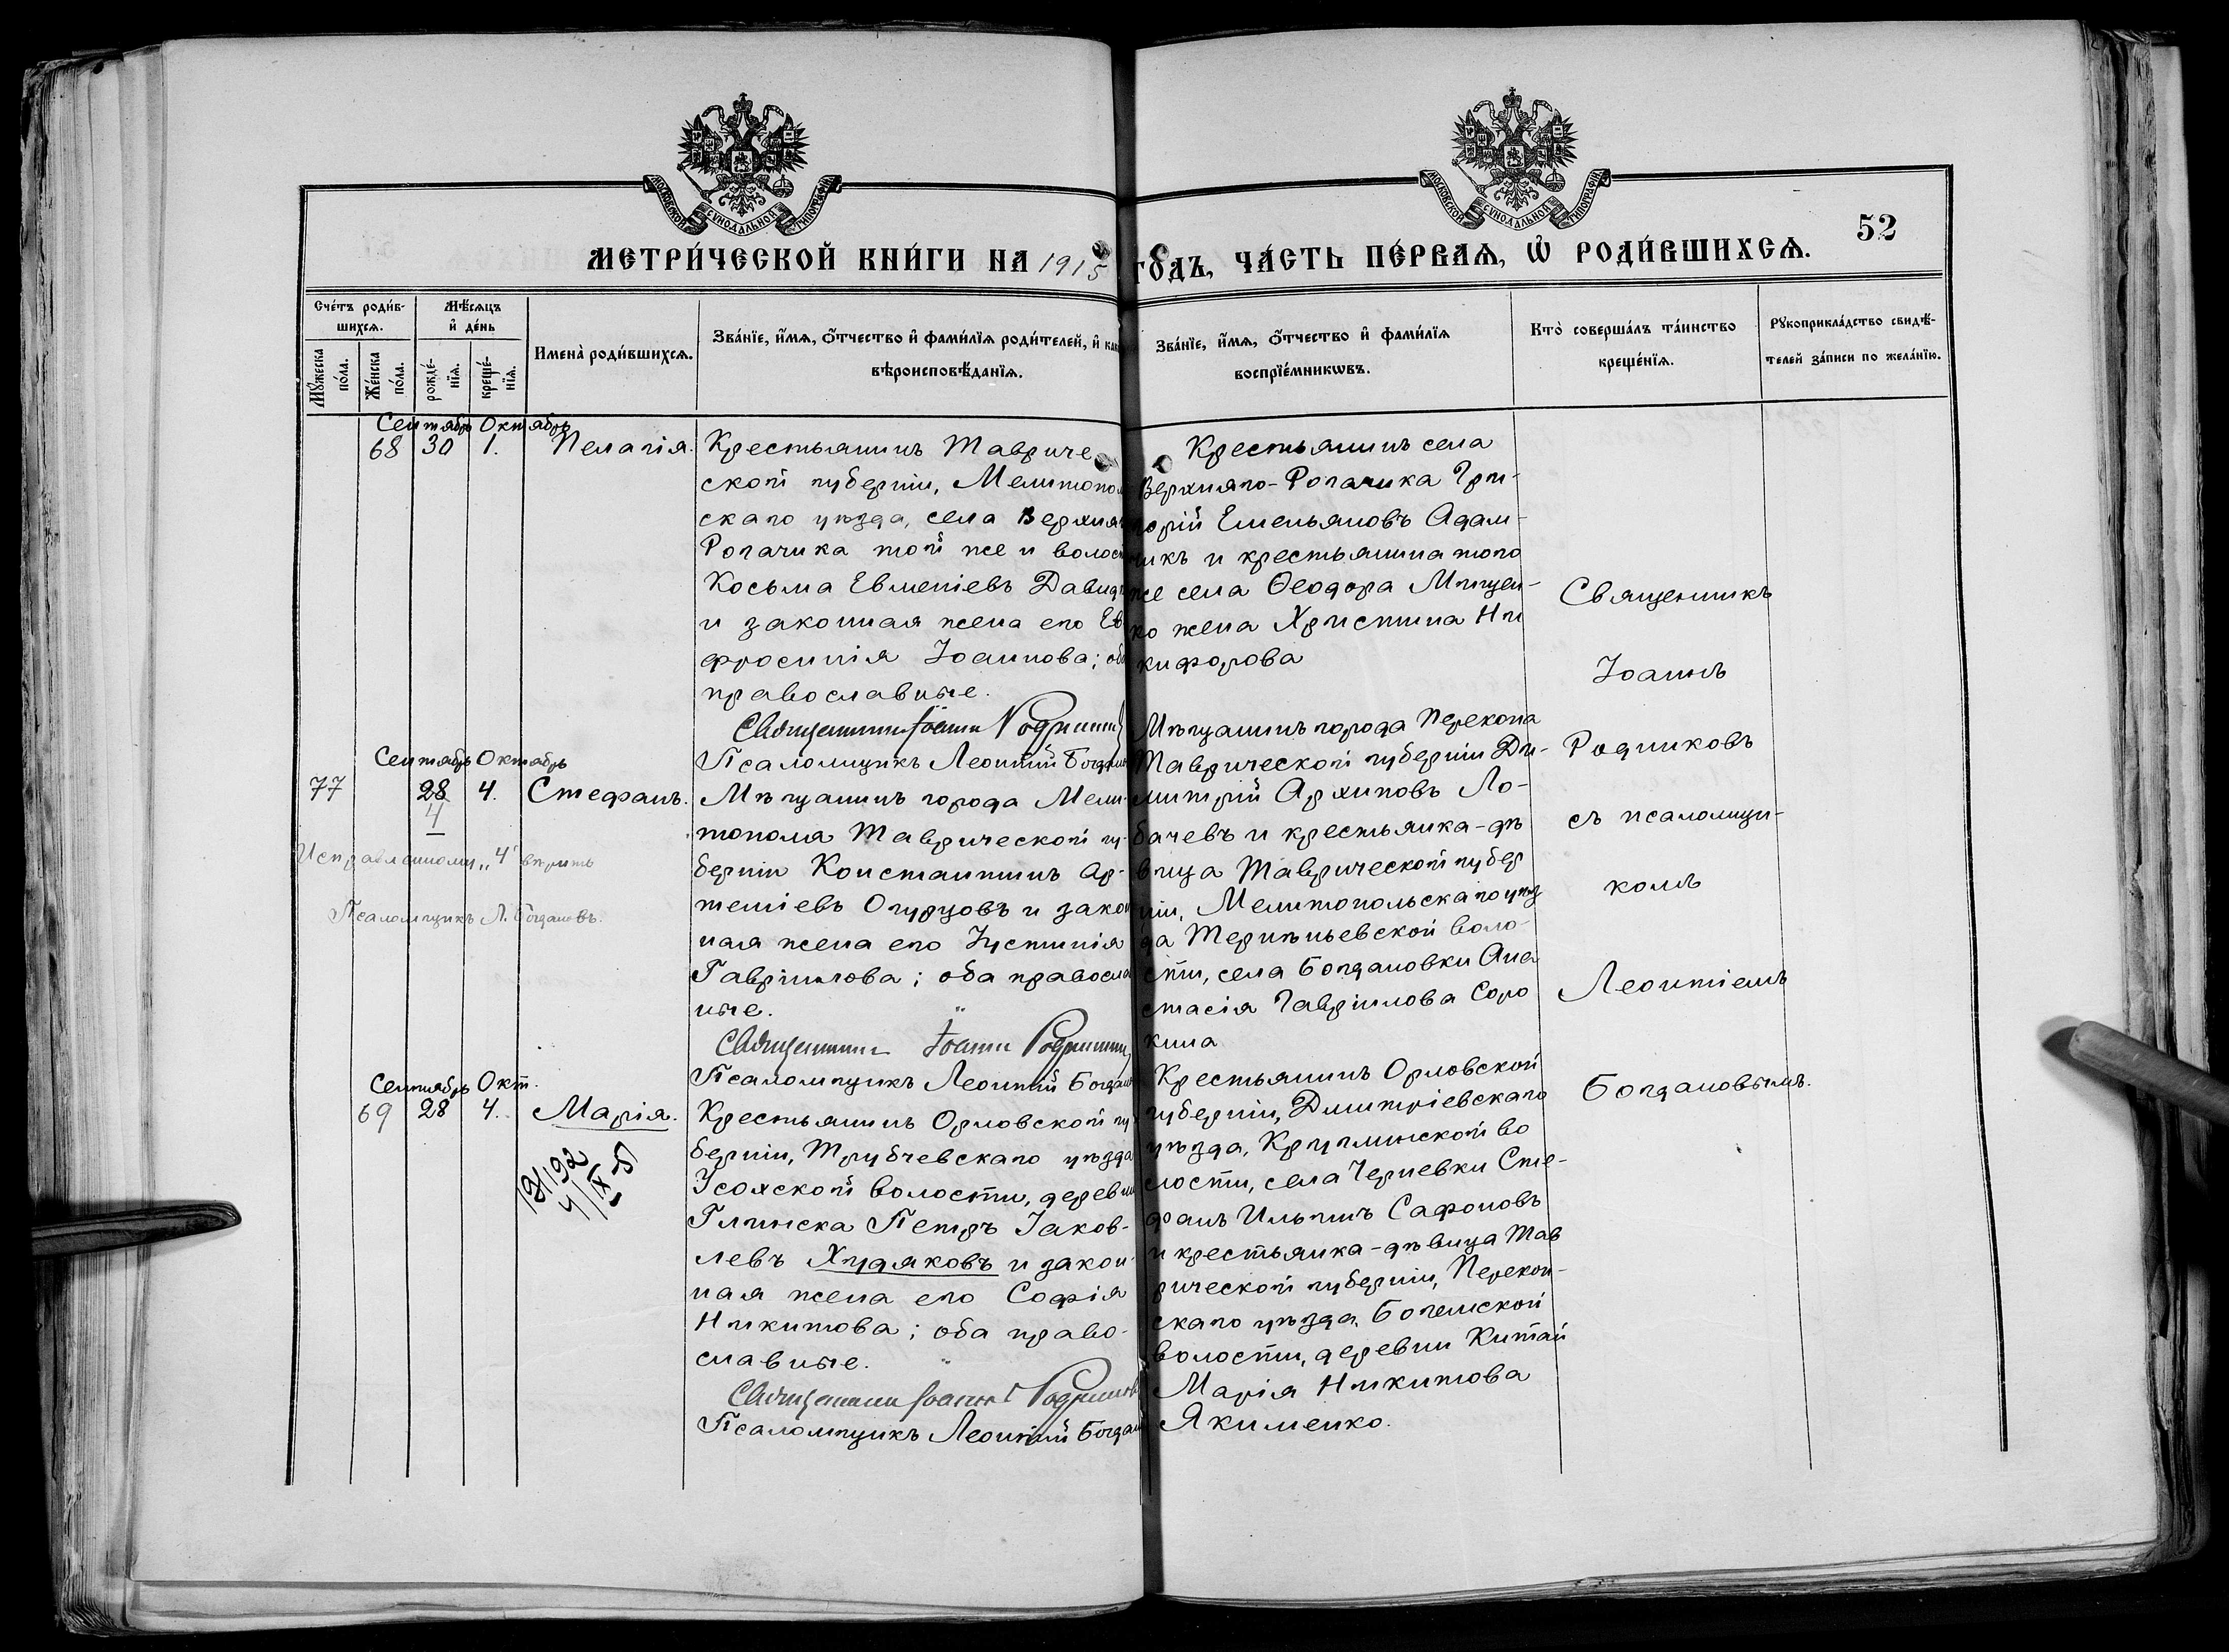 МОСКОВСКОЙ СѴНОДАЛЬНОЙ ТИПОГРАФІИ
МОСКОВСКОЙ СѴНОДАЛЬНОЙ ТИПОГРАФІИ
52
МЕТРИ́ЧЕСКОЙ КНИ́ГИ НА 1915 ГОДЪ, ЧА́СТЬ ПЕ́РВАѦ, Ѡ РОДИ́ВШИХСѦ.
Сче́тъ роди́в-
шихсѧ.
Мꙋ́жеска по́ла.
Же́нска по́ла.
Мѣ́сѧцъ
и҆ де́нь
рожде́-нїѧ.
креще́-нїѧ.
Имена̀ роди́вшихсѧ.
Зва́нїе, и҆́мѧ, ѻ҆́тчество и҆ фами́лїѧ роди́телей, и҆
вѣроисповѣ́данїѧ.
Зва́нїе, и҆́мѧ, ѻ҆́тчество и҆ фами́лїѧ
воспрїе́мникѡвъ.
Кто̀ соверша́лъ та́инство
креще́нїѧ.
Рꙋкоприкла́дство свидѣ́-
телей за́писи по жела́нїю.
Сентябрь Октябрь
68 30 1. Пелагія.
Крестьянинъ Тавриче
ской губерніи, Мелитопол
скаго уѣзда, села Верхня
Рогачика той же и волос
Косьма Евменіевъ Давид
и законная жена его Ев
фросинія Іоаннова; об
православные.
Священникъ Іоаннъ Родников
Псаломщикъ Леонтій Богдан
Крестьянинъ села
Верхняго-Рогачика Гри-
горій Емельяновъ Адам-
чикъ и крестьянина того
же села Ѳеодора Мищен-
ко жена Христина Ни
кифорова
Сентябрь Октябрь
77 28 4. Стефанъ.
4
Исправленному „4" вѣрить
Псаломщикъ Л. Богдановъ.
Мѣщанинъ города Мели-
тополя Таврической гу-
берніи Константинъ Ар-
теміевъ Огурцовъ и закон
ная жена его Іустинія
Гавріилова; оба правосла
ные.
Священникъ Іоаннъ Родников
Псаломщикъ Леонтій Богдан
Мѣщанинъ города Перекопа
Таврической губерніи Ди-
митрій Архиповъ Ло-
бачевъ и крестьянка-дѣ
вица Таврической губер
ніи, Мелитопольскаго уѣз
да Терпѣньевской воло-
сти, села Богдановки Ана
стасія Гавріилова Соро
кина
Сентябрь Окт.
69 28 4. Марія.
Крестьянинъ Орловской гу
берніи, Трубчевскаго уѣзда
Усохской волости, деревни
Глинска Петръ Іаков-
левъ Худяковъ и закон
ная жена его Софія
Никитова; оба право-
славные.
Священникъ Іоаннъ Родников
Псаломщикъ Леонтій Богдан
Крестьянинъ Орловской
губерніи, Димитріевскаго
уѣзда, Круглинской во
лости, села Черневки Сте-
фанъ Ильинъ Сафоновъ
и крестьянка-дѣвица Тав
рической губерніи, Перекоп-
скаго уѣзда, Богемской
волости, деревни Китай
Марія Никитова
Якименко.
Священникъ
Іоаннъ
Родниковъ
съ псаломщи-
комъ
Леонтіемъ
Богдановымъ.